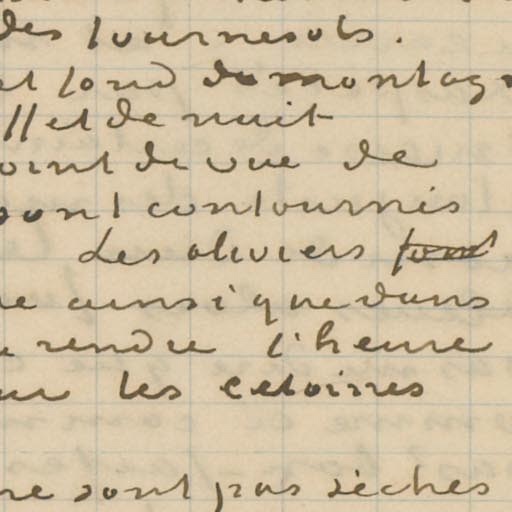 des tournesols.
et fond de montagn
et de nuit
oint de vue de
sont contournés
Les oliviers
e ainsi que dans
rendre l'heure
les
ne sont pas sèches